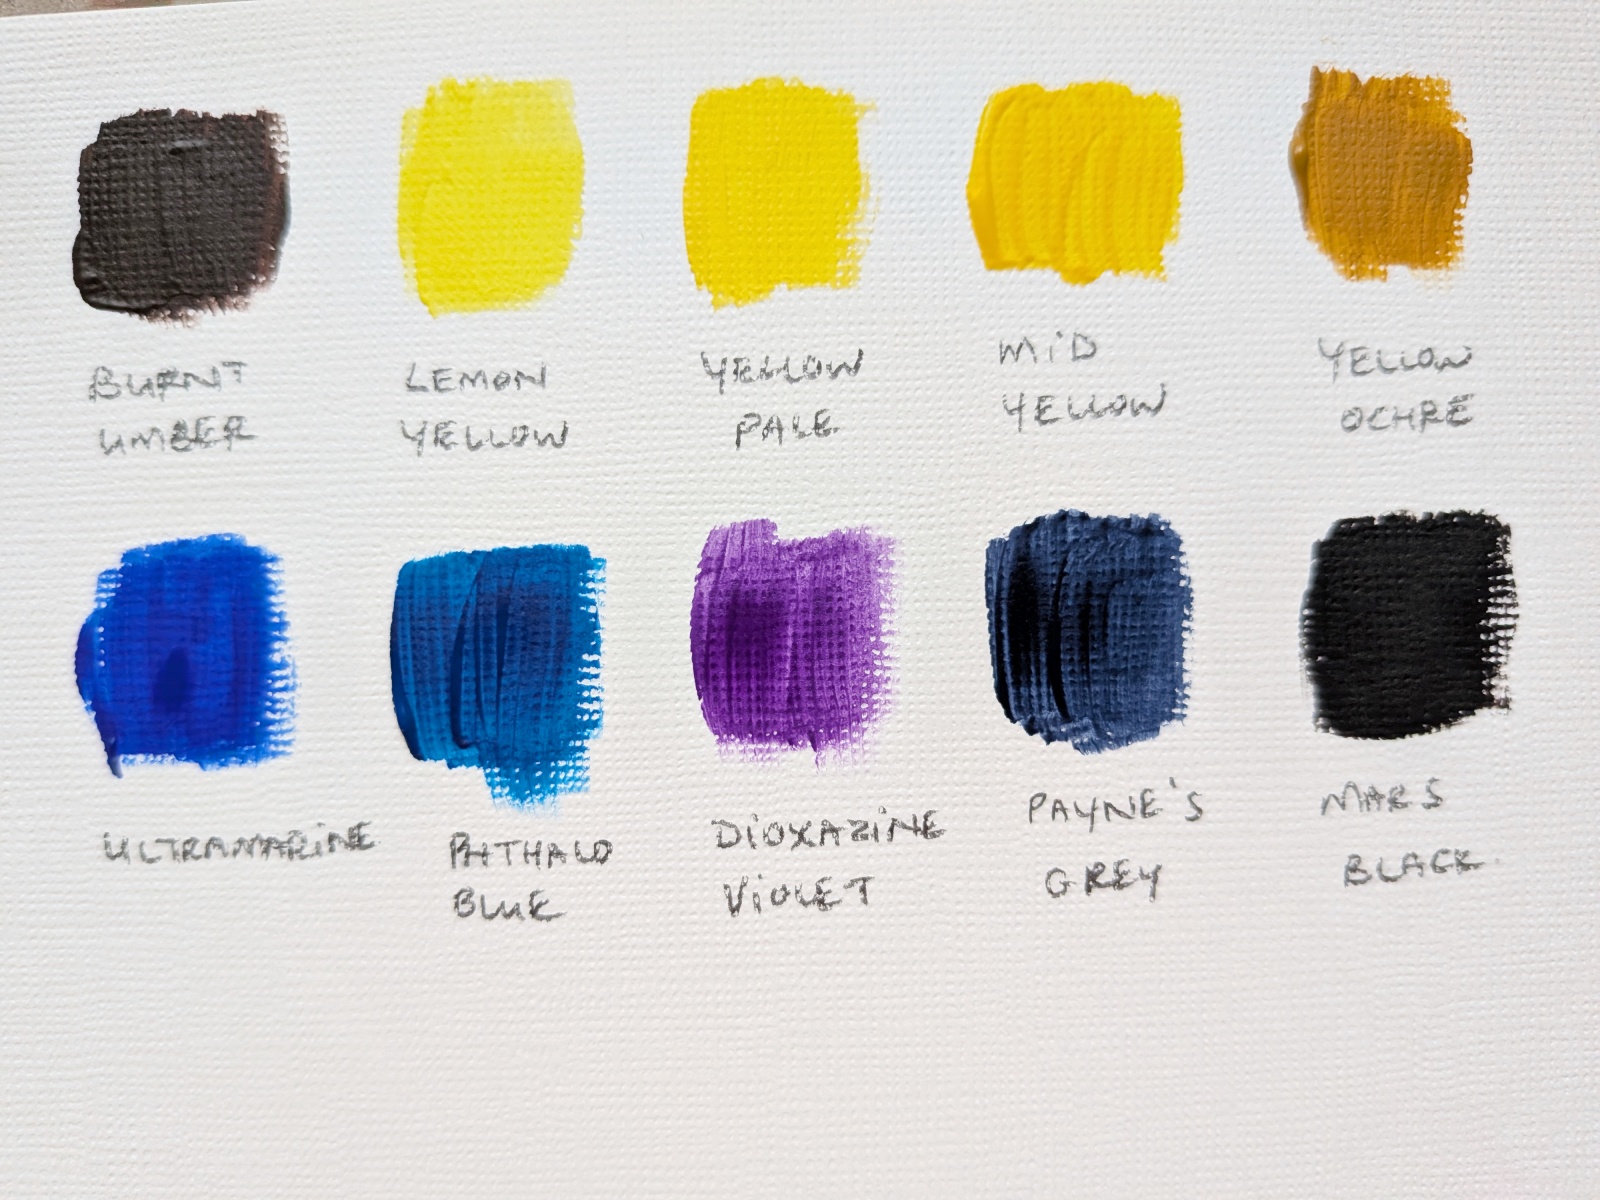 BURNT
UMBER
LEMON
YELLOW
YELLOW
PALE
MiD
YELLOW
YELLOW
OCHRE
ULTRAMARiNE
PHTHALO
BLUE
DiOXAZiNE
ViOLET
PAYNE'S
GREY
MARS
BLACK